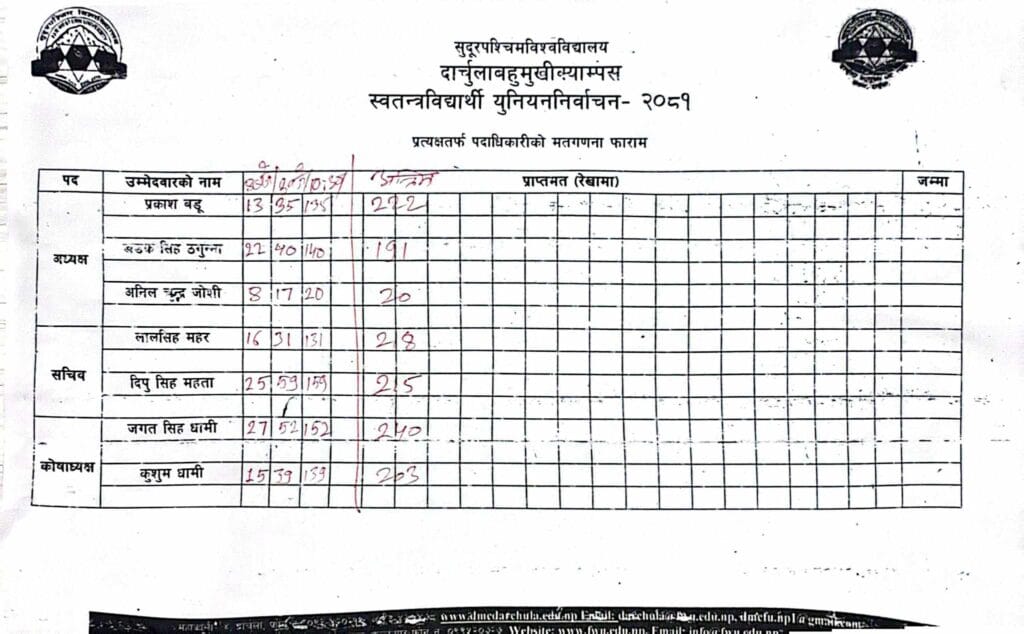 सुदूरपश्चिमविश्वविद्यालय
दार्चुलाबहुमुखीक्याम्पस
स्वतन्त्रविद्यार्थी युनियननिर्वाचन- २०८१
प्रत्यक्षतर्फ पदाधिकारीको मतगणना फाराम
पद उम्मेदवारको नाम अन्तिम प्राप्तमत (रेखामा) जम्मा
प्रकाश बडू 13 35 135 222
अध्यक्ष
सिंह ठगुन्ना 22 40 140 191
अनिल चन्द्र जोशी 8 17 20 20
लालसिह महर 16 31 131 218
सचिव
दिपु सिह महता 25 59 159 215
जगत सिह धामी 27 52 152 240
कोषाध्यक्ष
कुशुम धामी 15 39 139 203
www.dmcdarchula.edu.np Email:
Website: www.fwu.edu.np, Email: info@fwu.edu.np